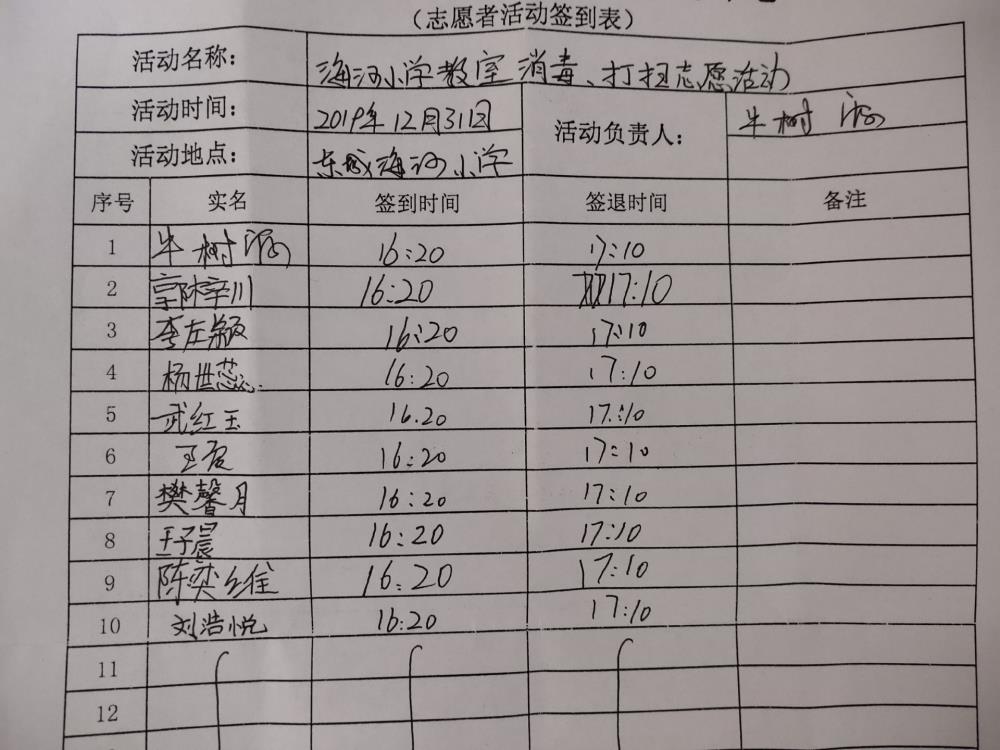 （志愿者活动签到表）
活动名称： 海河小学教室消毒、打扫志愿活动
活动时间： 2019年12月31日 活动负责人： 牛树
活动地点： 东城海河小学
序号 实名 签到时间 签退时间 备注
1 牛树 16:20 17:10
2 郭 川 16:20 17:10
3 李左 16:20 17:10
4 杨世蕊 16:20 17:10
5 武红玉 16.20 17:10
6 王君 16:20 17:10
7 樊馨月 16:20 17:10
8 王子晨 16:20 17:10
9 陈奕维 16:20 17:10
10 刘浩悦 16:20 17:10
11
12